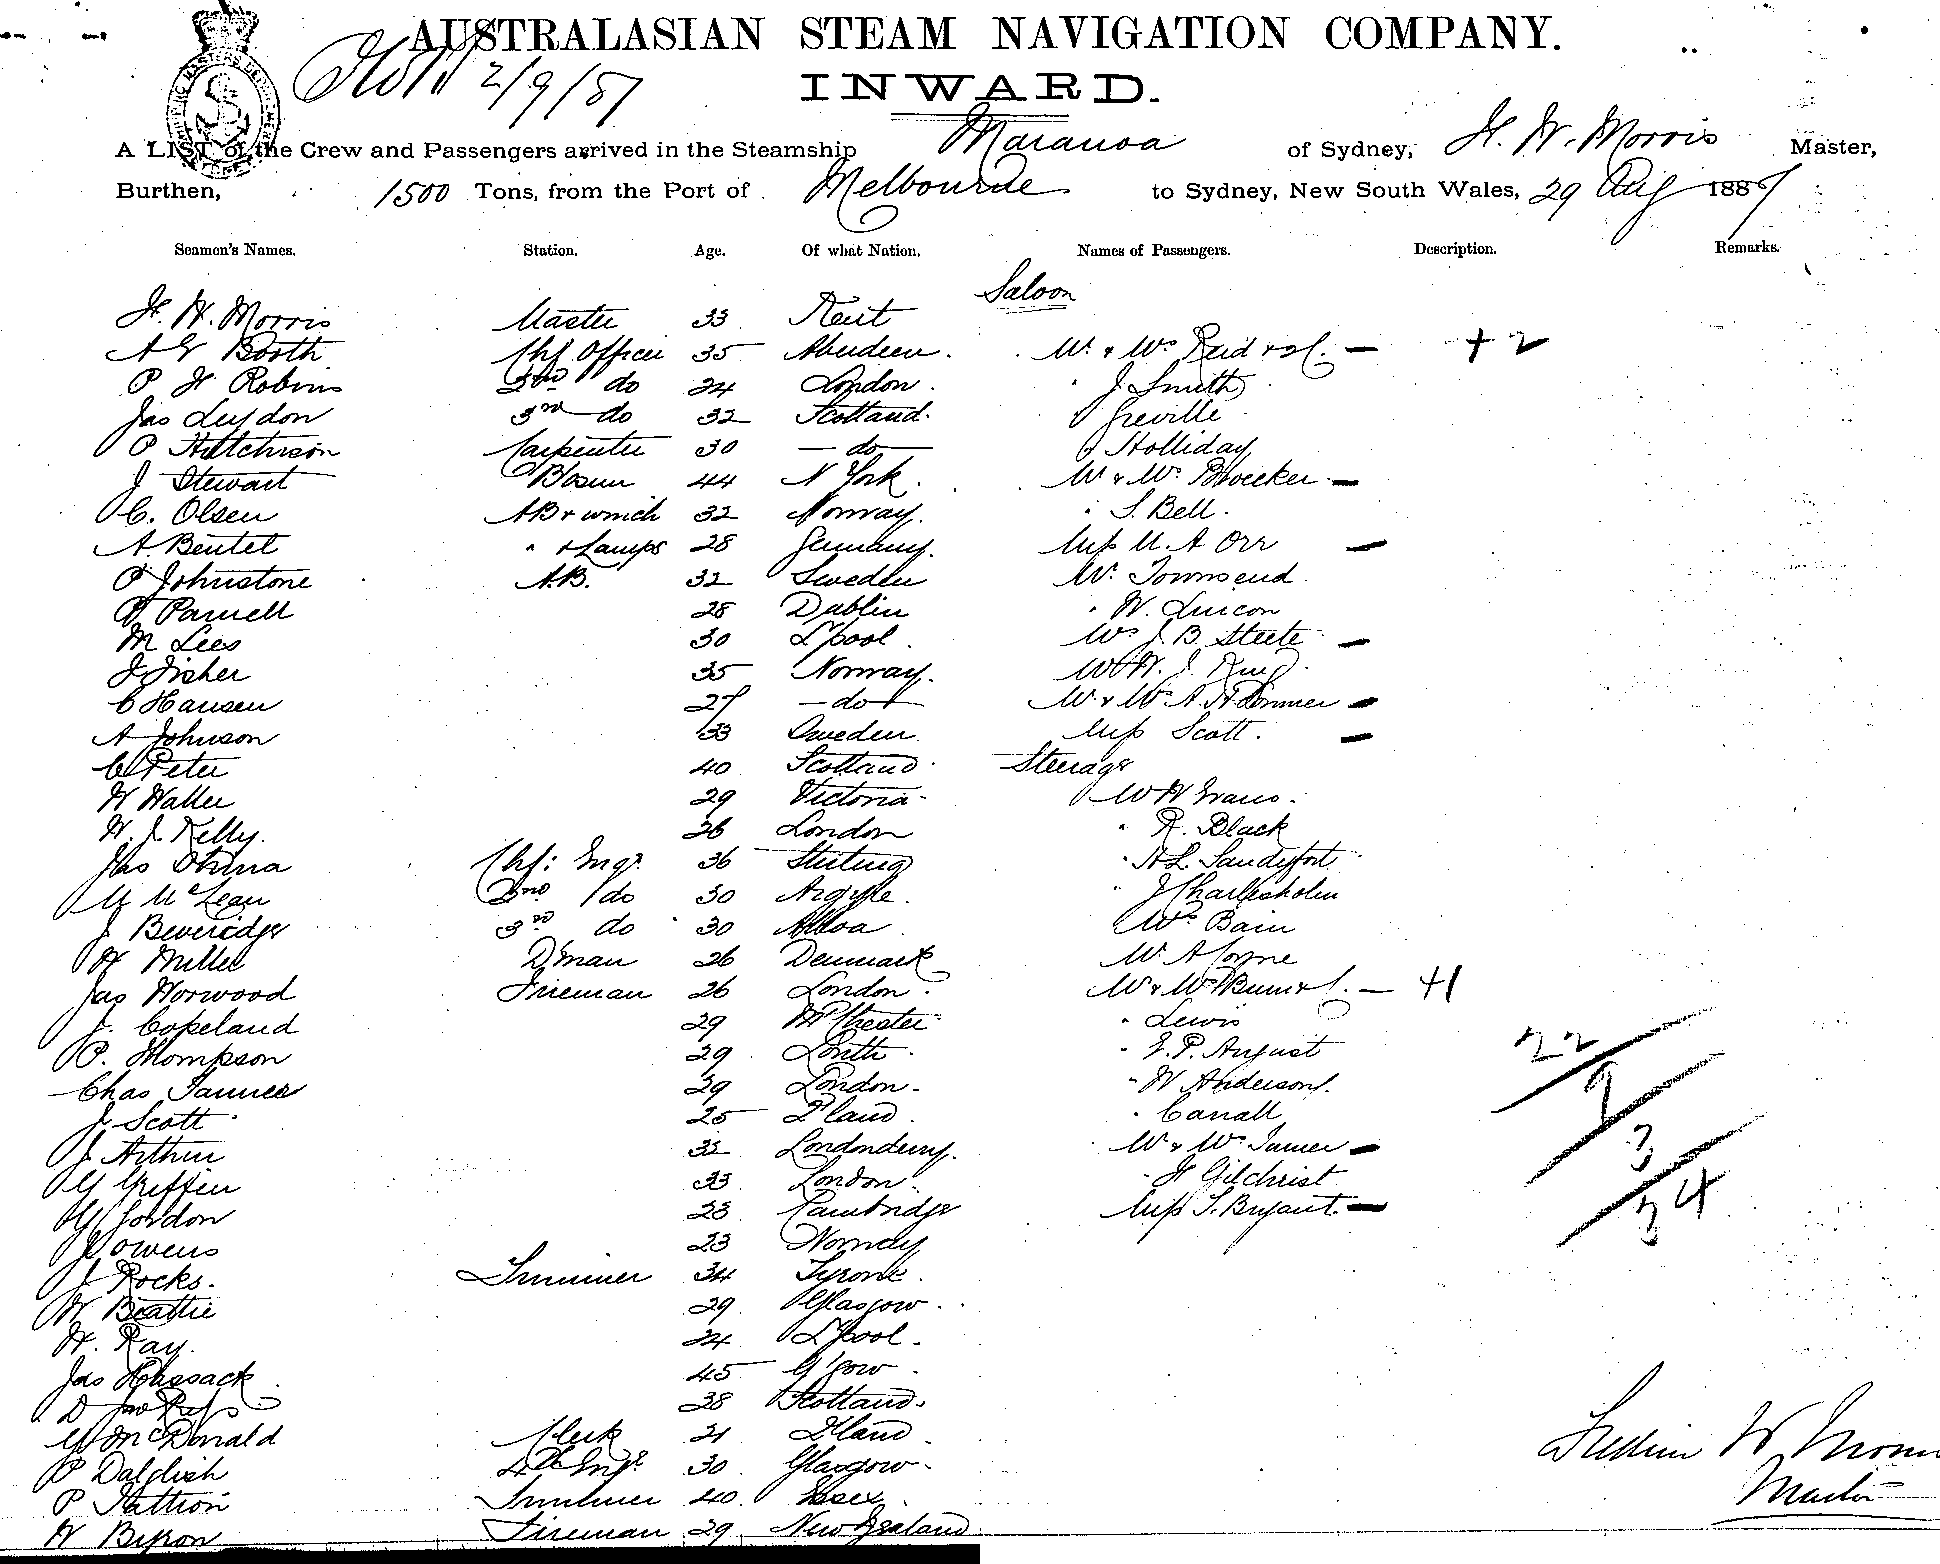 AUSTRALASIAN STEAM NAVIGATION COMPANY.
2/9/87
INWARD.
A LIST of the Crew and Passengers arrived in the Steamship Maranoa of Sydney, H. W. Morris Master,
Burthen, 1500 Tons, from the Port of Melbourne to Sydney, New South Wales, 29 Aug 1887
Seamen's Names. Station. Age. Of what Nation. Names of Passengers. Description. Remarks.
Saloon
H. W. Morris Master 33 Kent
Booth Chf Officer 35 Aberdeen. Mr. & Mrs Reid + 2
P H Robins 2nd do 24 London. J Smith
Jas Leydon 3rd do 32 Scotland. Greville
P Hutchison Carpenter 30 do Holliday
J Stewart Bosun 44 N York. Mr & Mrs Broecker
C. Olsen AB & winch 32 Norway. S. Bell.
A. Beutel " & Lamps 28 Germany. Miss M. A Orr
P Johnstone A.B. 32 Sweden Mr. Townsend
P Parnell 28 Dublin " W.
M Lees 30 L'pool Mrs J. B. Steele
J Fisher 35 Norway. J. King
C Hansen 27 do Mr & Mrs A. H
A Johnson 33 Sweden. Miss Scott.
C Peter 40 Scotland Steerage
W Waller 29 Victoria Mr W Evans.
W. J. Kelly. 26 London " R. Black
Jas 36 Stirling
M McLean 30 Argyle. J Charlisholm
J Beveridge 3rd do 30 Alloa Mrs Bain
H Miller D'man 26 Denmark Mr A Coyne
Jas Norwood Fireman 26 London. Mr & Mrs + 1
J. Copeland 29 M'chester " Lewis
P. Thompson 29 Louth. August
Chas Tanner 29 London. " W Anderson
J. Scott 25 I'land
J Arthur 32 Londonderry. Mr & Mrs
G Griffin 33 London. " H Gilchrist
G Gordon 23 Cambridge Miss S. Bryant.
J Owens 23 Norway
J Rocks. Trimmer 34 Tyrone.
W Beattie 29 Glasgow.
W. Ray. 24 L'pool.
Jas Hossack 45 G'gow
38 Scotland.
G McDonald Clerk 21 I'land
P Dalglish 4th Engr 30 Glasgow
P Hattion Trimmer 40 Essex
W Byron Fireman 29 New Zealand
22
9
3
34
Master